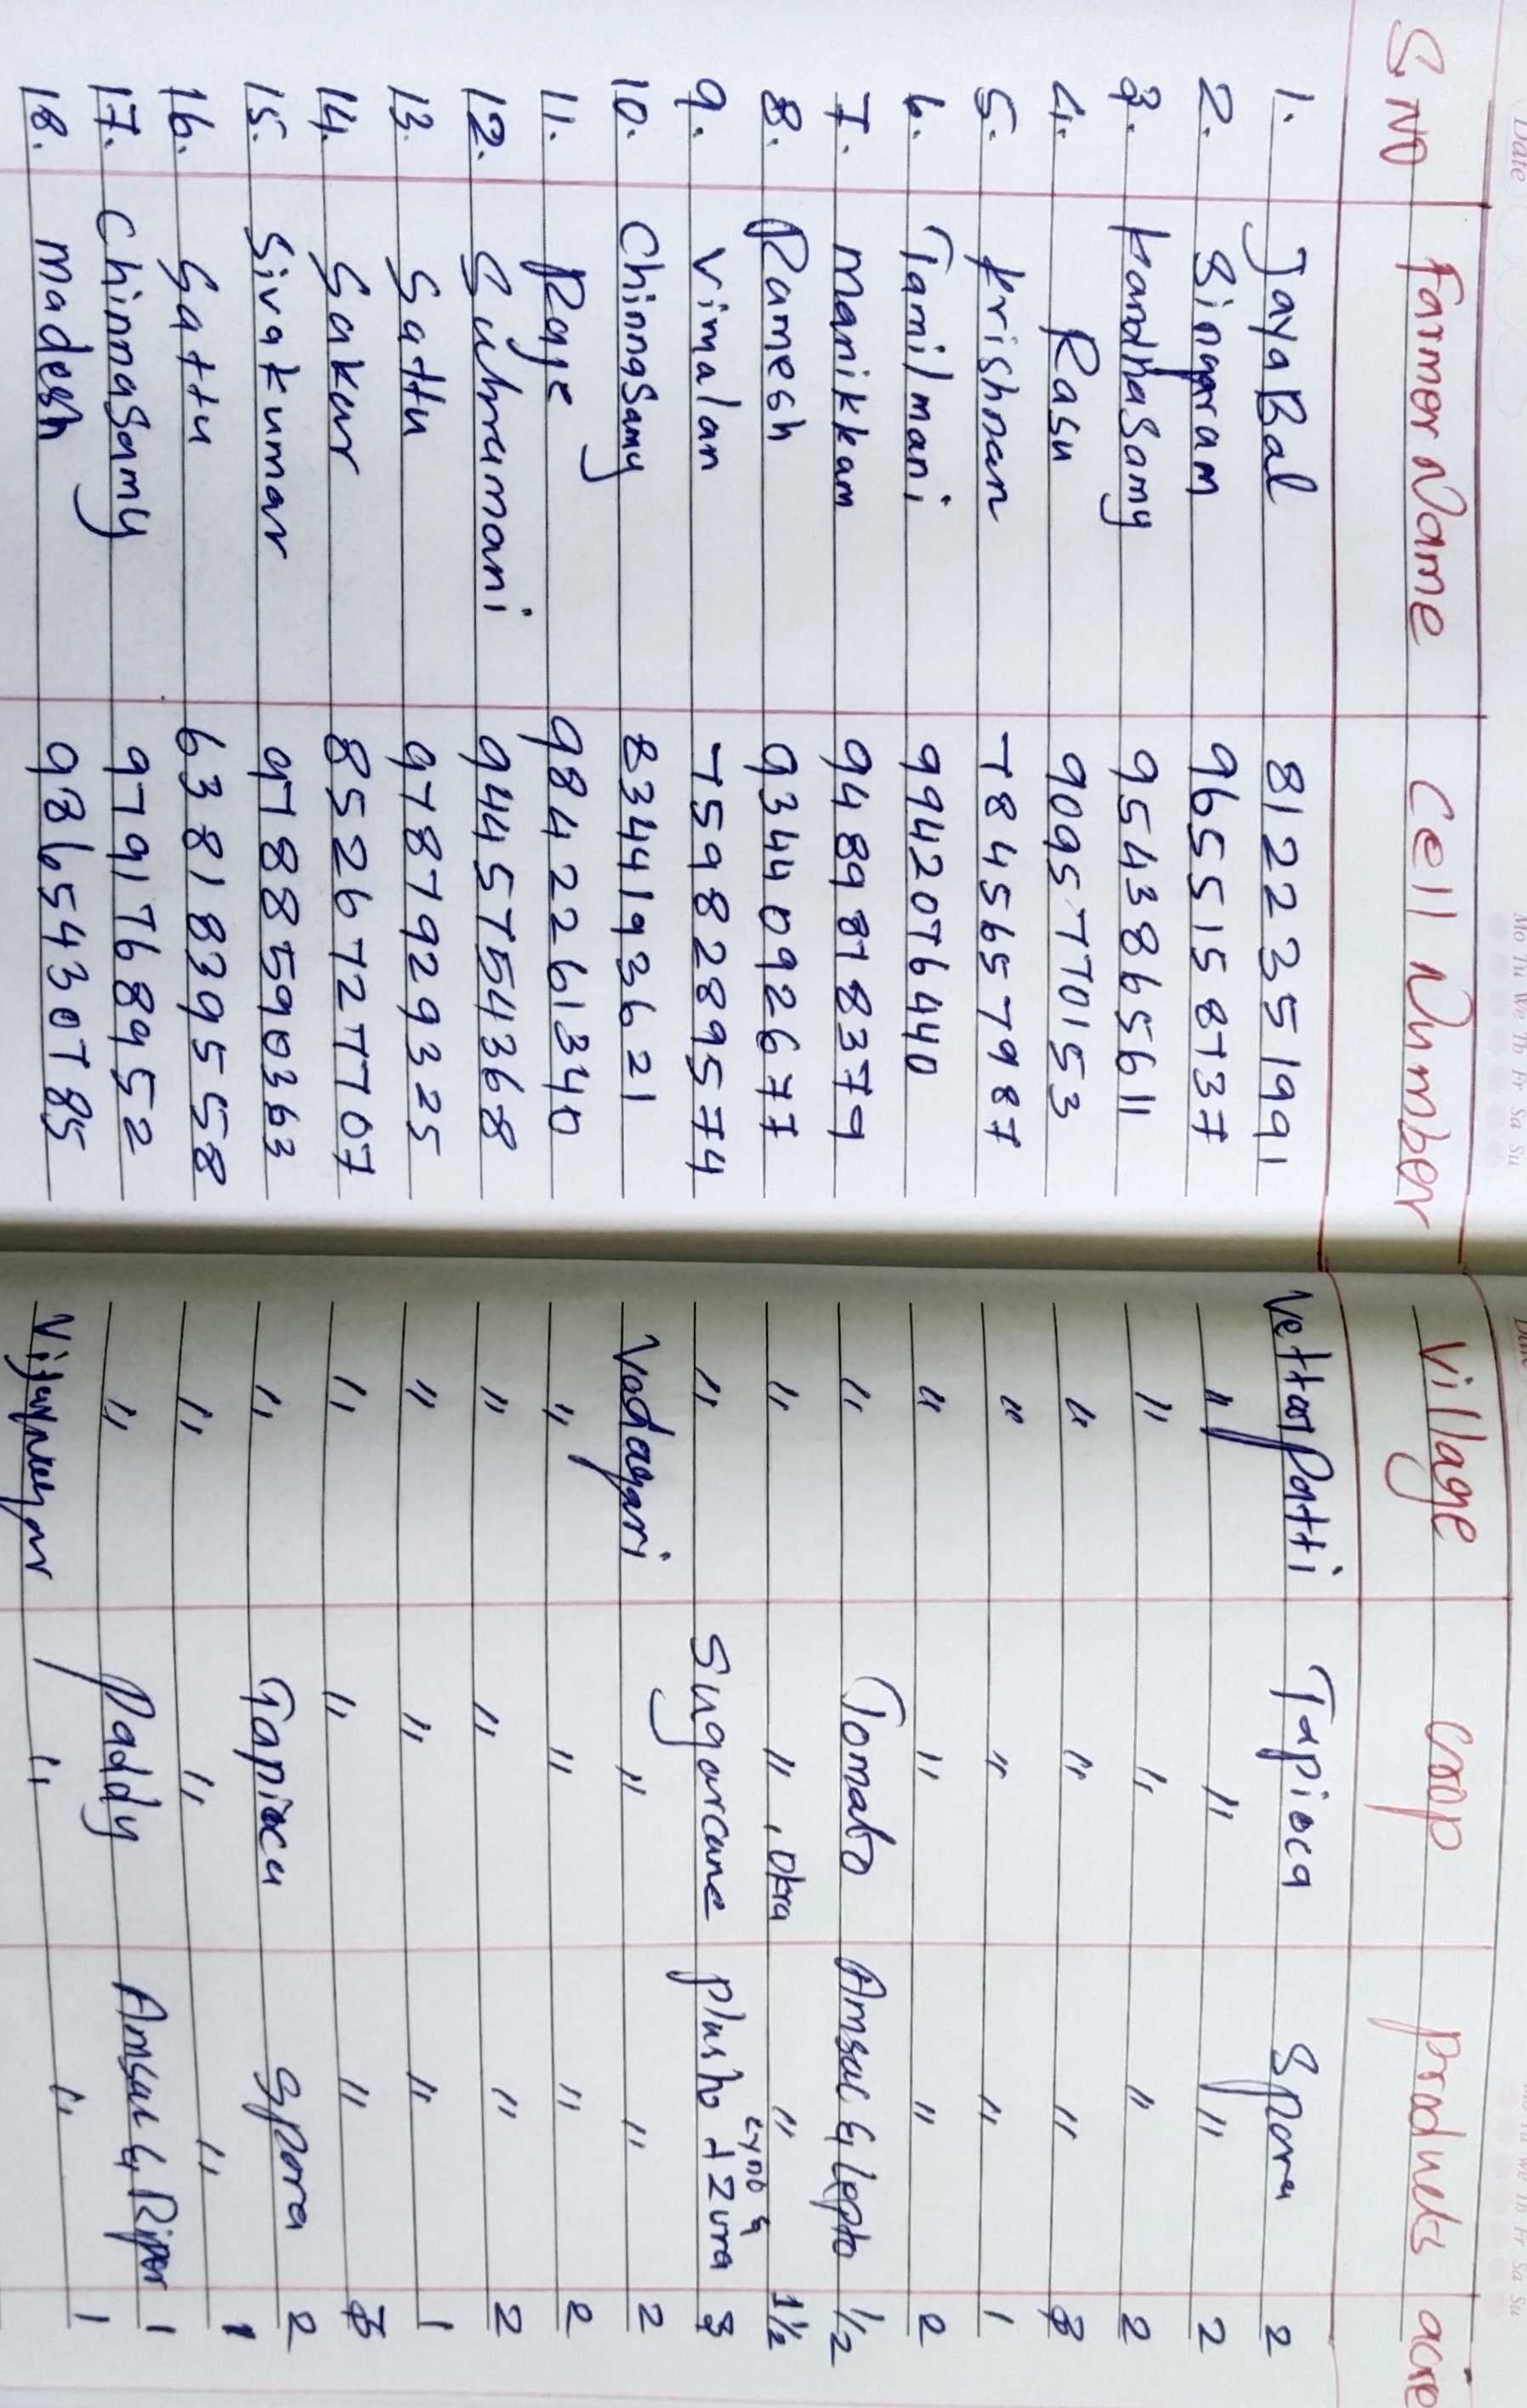 S.NO Farmer Name Cell Number Village Crop Products acre
1. JayaBal 8122351991 Vettaipatti Tapioca Spora 2
2. Singaram 9655515873 7 " " " 2
3. KandhaSamy 9543865611 " " " 2
4. Rasu 9095770153 " " "
5. Krishnan 7845657987 " " " 1
6. Tamilmani 9942076440 " " " 2
7. Manikkam 9489878379 " Tomato Amsac & Lepto 1/2
8. Ramesh 9344092677 " " , Okra " 1 1/2
9. Vimalan 7598289574 " Sugarcane Plusho + Zura 3
10. ChinnaSamy 8344193621 Vadagari " " 2
11. Raje 9842261340 " " " 2
12. Subramani 9445754368 " " " 2
13. Sattu 9787929325 " " " 1
14. Sakur 8526727707 " " "
15. Sivakumar 9788590363 " Tapioca Spora 2
16. Sattu 6381839558 " " "
17. ChinnaSamy 9791768952 " Paddy Amsac & Ripor 1
18. Madesh 9865430785 " " 1